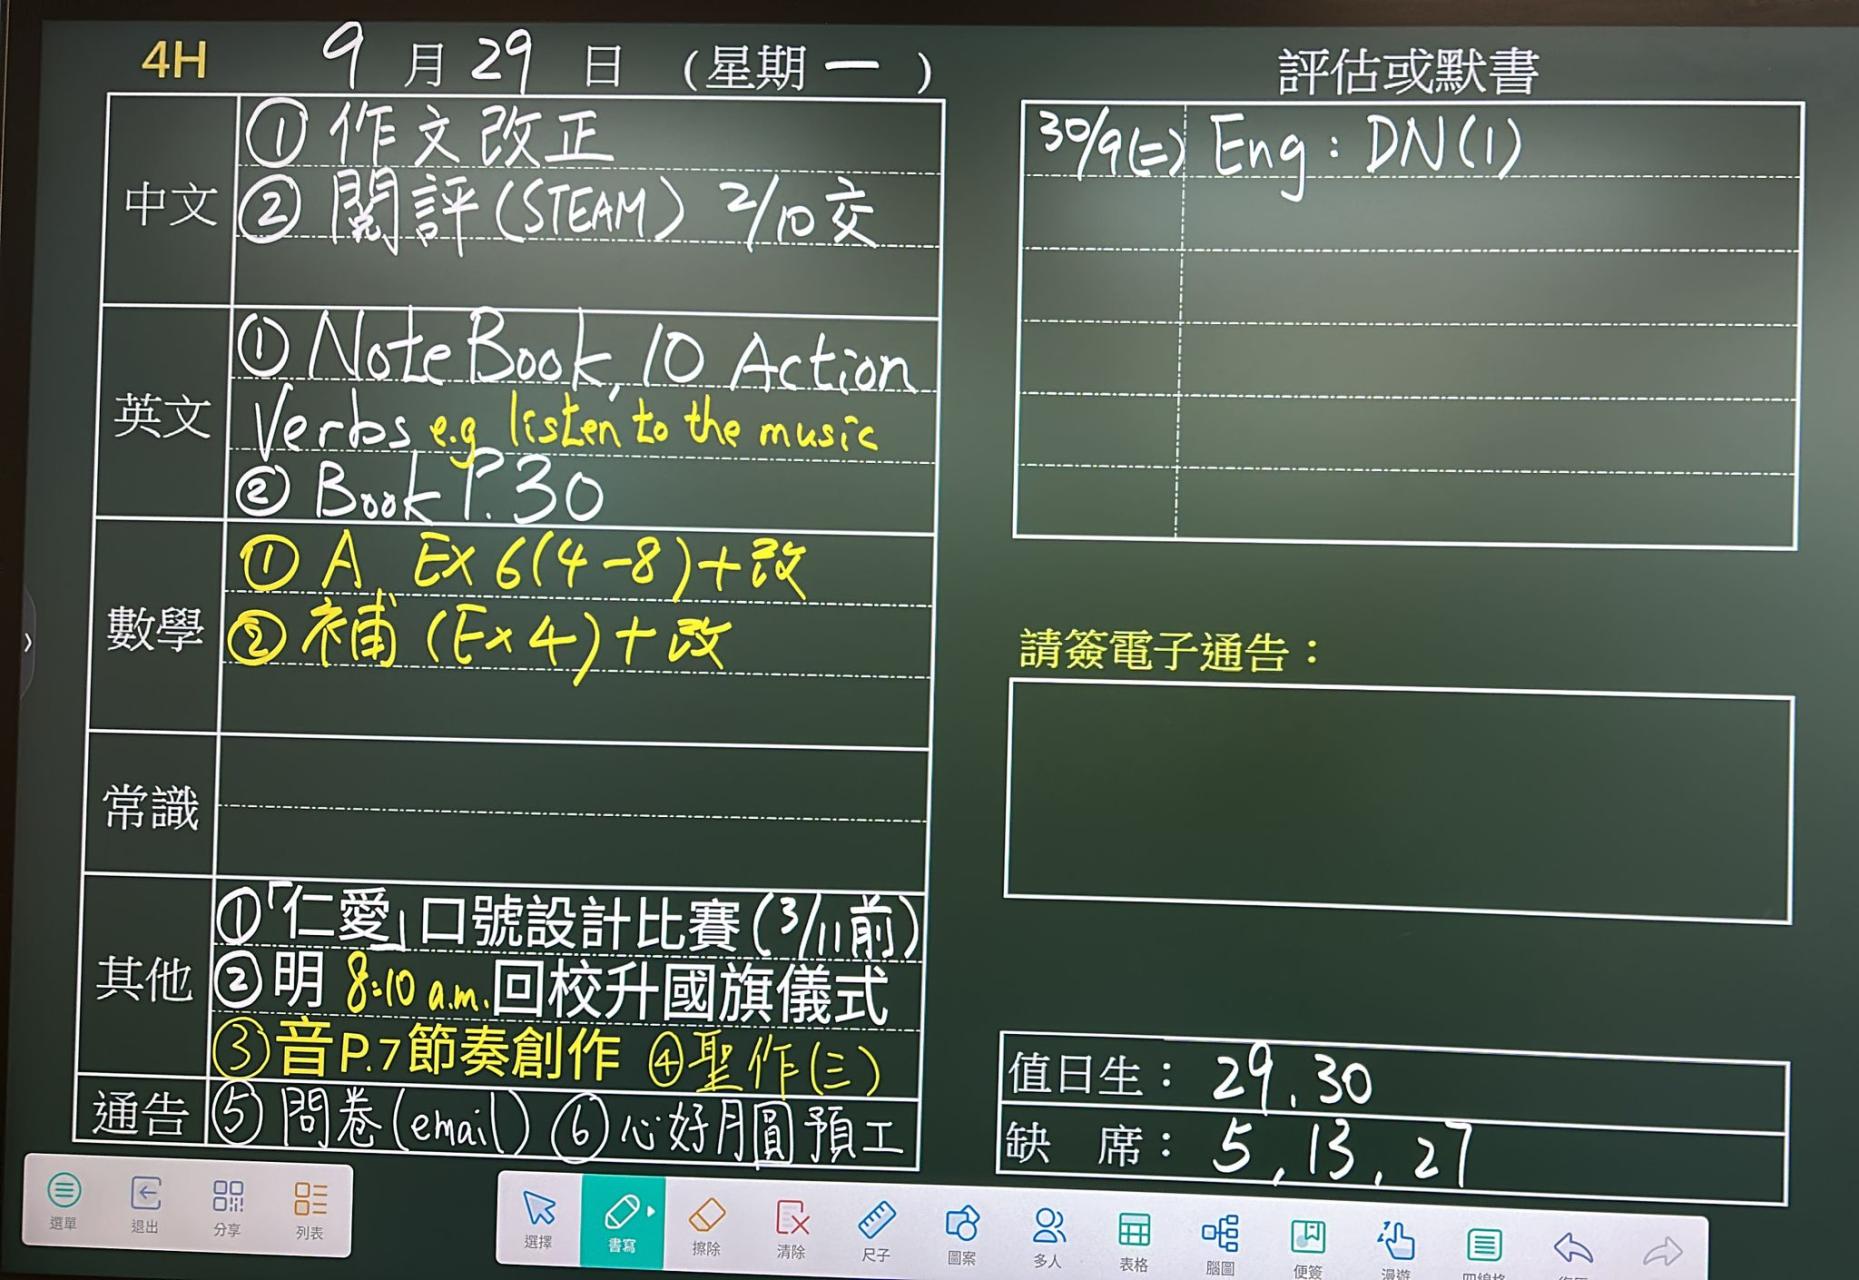 4H 9月29日 (星期一)
中文
① 作文改正
② 閱評(STEAM) 2/10交
英文
① NoteBook, 10 Action
Verbs e.g listen to the music
② Book P.30
數學
① A Ex 6(4-8)+改
② 補 (Ex 4)+改
常識
其他
①「仁愛」口號設計比賽(3/11前)
②明 8:10 a.m.回校升國旗儀式
③音P.7節奏創作 ④聖作(三)
通告
⑤ 問卷(email) ⑥心好月圓預工
評估或默書
30/9(二) Eng: DN(1)
請簽電子通告：
值日生： 29, 30
缺 席： 5, 13, 27
選單
退出
分享
列表
選擇
書寫
擦除
清除
尺子
圖案
多人
表格
腦圖
便簽
漫遊